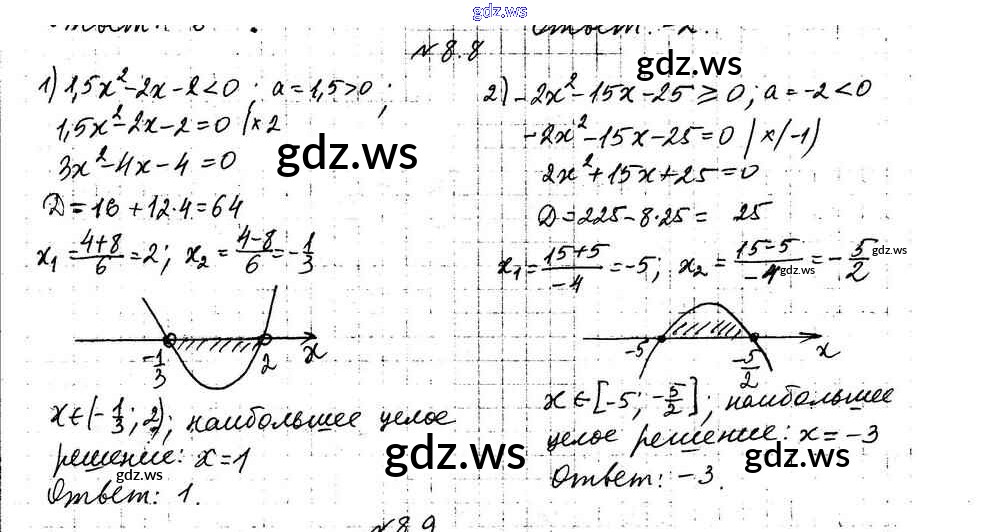 gdz.ws
Ответ: -2.
N 8.8
gdz.ws
1) 1,5x² - 2x - 2 < 0 ; a = 1,5 > 0 ;
1,5x² - 2x - 2 = 0 | × 2
3x² - 4x - 4 = 0
gdz.ws
D = 16 + 12·4 = 64
x₁ = (4+8)/6 = 2; x₂ = (4-8)/6 = -1/3
-1/3 2 x
x ∈ (-1/3; 2); наибольшее целое
решение: x = 1
gdz.ws
gdz.ws
Ответ: 1.
2) -2x² - 15x - 25 ≥ 0; a = -2 < 0
-2x² - 15x - 25 = 0 | × (-1)
2x² + 15x + 25 = 0
D = 225 - 8·25 = 25
x₁ = (15+5)/-4 = -5; x₂ = (15-5)/-4 = -5/2
gdz.ws
gdz.ws
-5 -5/2 x
x ∈ [-5; -5/2]; наибольшее
целое решение: x = -3
gdz.ws
Ответ: -3.
N 8.9